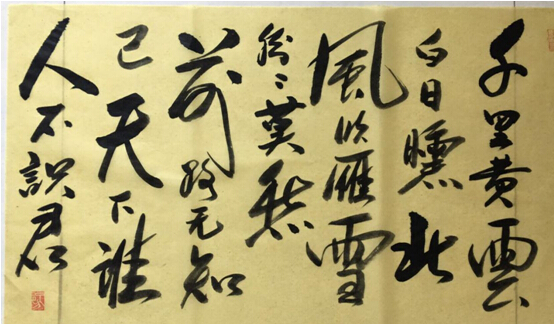 千里黄雲
白日曛北
風吹雁雪
紛〻莫愁
前路无知
己天下誰
人不識君